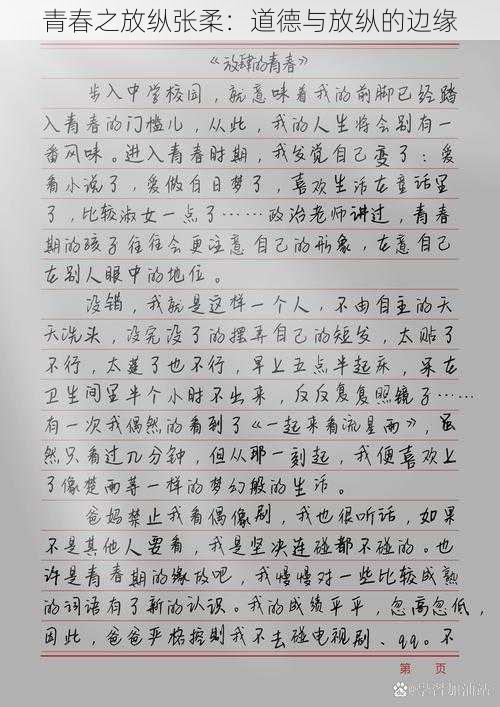 青春之放纵张柔：道德与放纵的边缘
《放肆的青春》
步入中学校园，就意味着我的前脚已经踏
入青春的门槛儿，从此，我的人生将会别有一
番风味。进入青春时期，我发觉自己变了：爱
看小说了，爱做白日梦了，喜欢生活在童话里
了，比较淑女一点了……政治老师讲过，青春
期的孩子往往会更注意自己的形象，在意自己
在别人眼中的地位。
没错，我就是这样一个人，不由自主的天
天洗头，没完没了的摆弄自己的短发，太贴了
不行，太蓬了也不行，早上五点半起床，呆在
卫生间里半个小时不出来，反反复复照镜子……
有一次我偶然的看到了《一起来看流星雨》，虽
然只看过几分钟，但从那一刻起，我便喜欢上
了像楚雨荨一样的梦幻般的生活。
爸妈禁止我看偶像剧，我也很听话，如果
不是其他人要看，我是坚决连碰都不碰的。也
许是青春期的缘故吧，我慢慢对一些比较成熟
的词语有了新的认识。我的成绩平平，忽高忽低，
因此，爸爸严格控制我不去碰电视剧、qq。不
第 页
@学习加油站